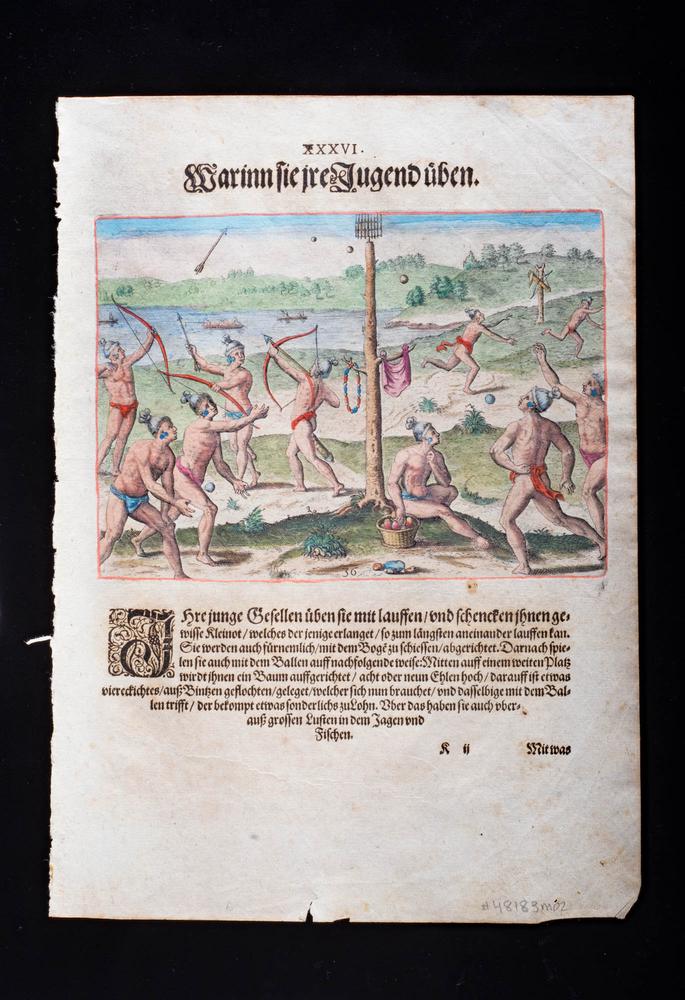 XXXVI.
Warinn sie jre Jugend üben.
36
IHre junge Gesellen üben sie mit lauffen/ vnd schencken jhnen ge-
wisse Kleinot/ welches der jenige erlanget/ so zum längsten aneinander lauffen kan.
Sie werden auch fürnemlich/ mit dem Bogē zu schiessen/ abgerichtet. Darnach spie-
len sie auch mit dem Ballen auff nachfolgende weise: Mitten auff einem weiten Platz
wirdt jhnen ein Baum auffgerichtet/ acht oder neun Ehlen hoch/ darauff ist etwas
viereckichtes/ auß Bintzen geflochten/ geleget/ welcher sich nun brauchet/ vnd dasselbige mit dem Bal-
len trifft/ der bekompt etwas sonderlichs zu Lohn. Vber das haben sie auch vber-
auß grossen Lusten in dem Jagen vnd
Fischen.
K ij Mit was
#48183moz